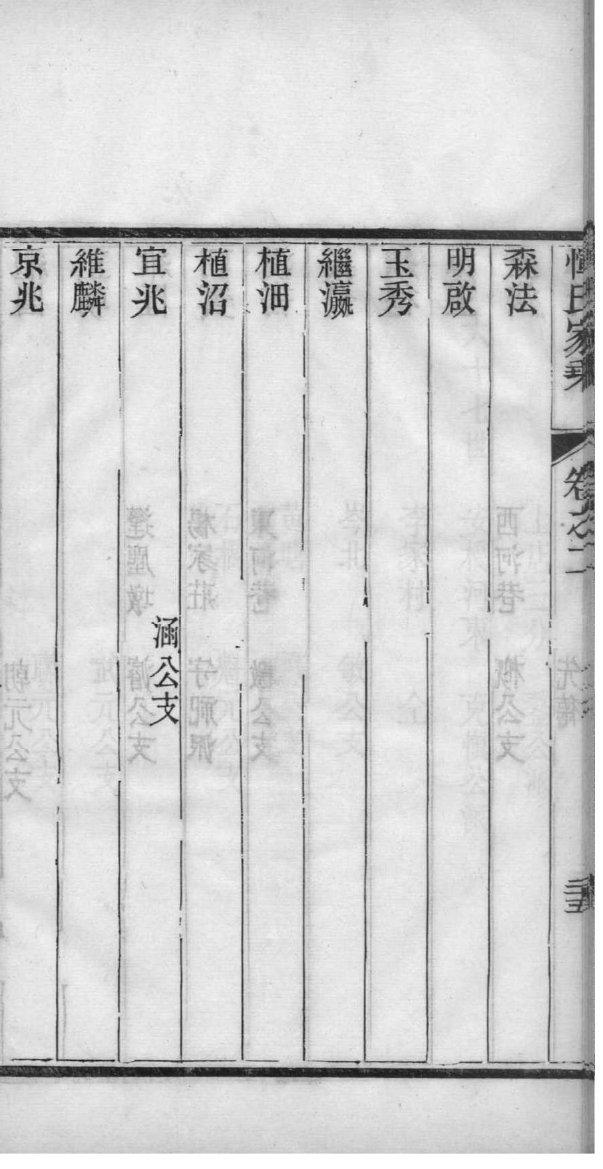 惲氏家乘
卷之二
三五
森法
明啟
玉秀
繼瀛
植沺
植沼
宜兆
涵公支
維麟
京兆